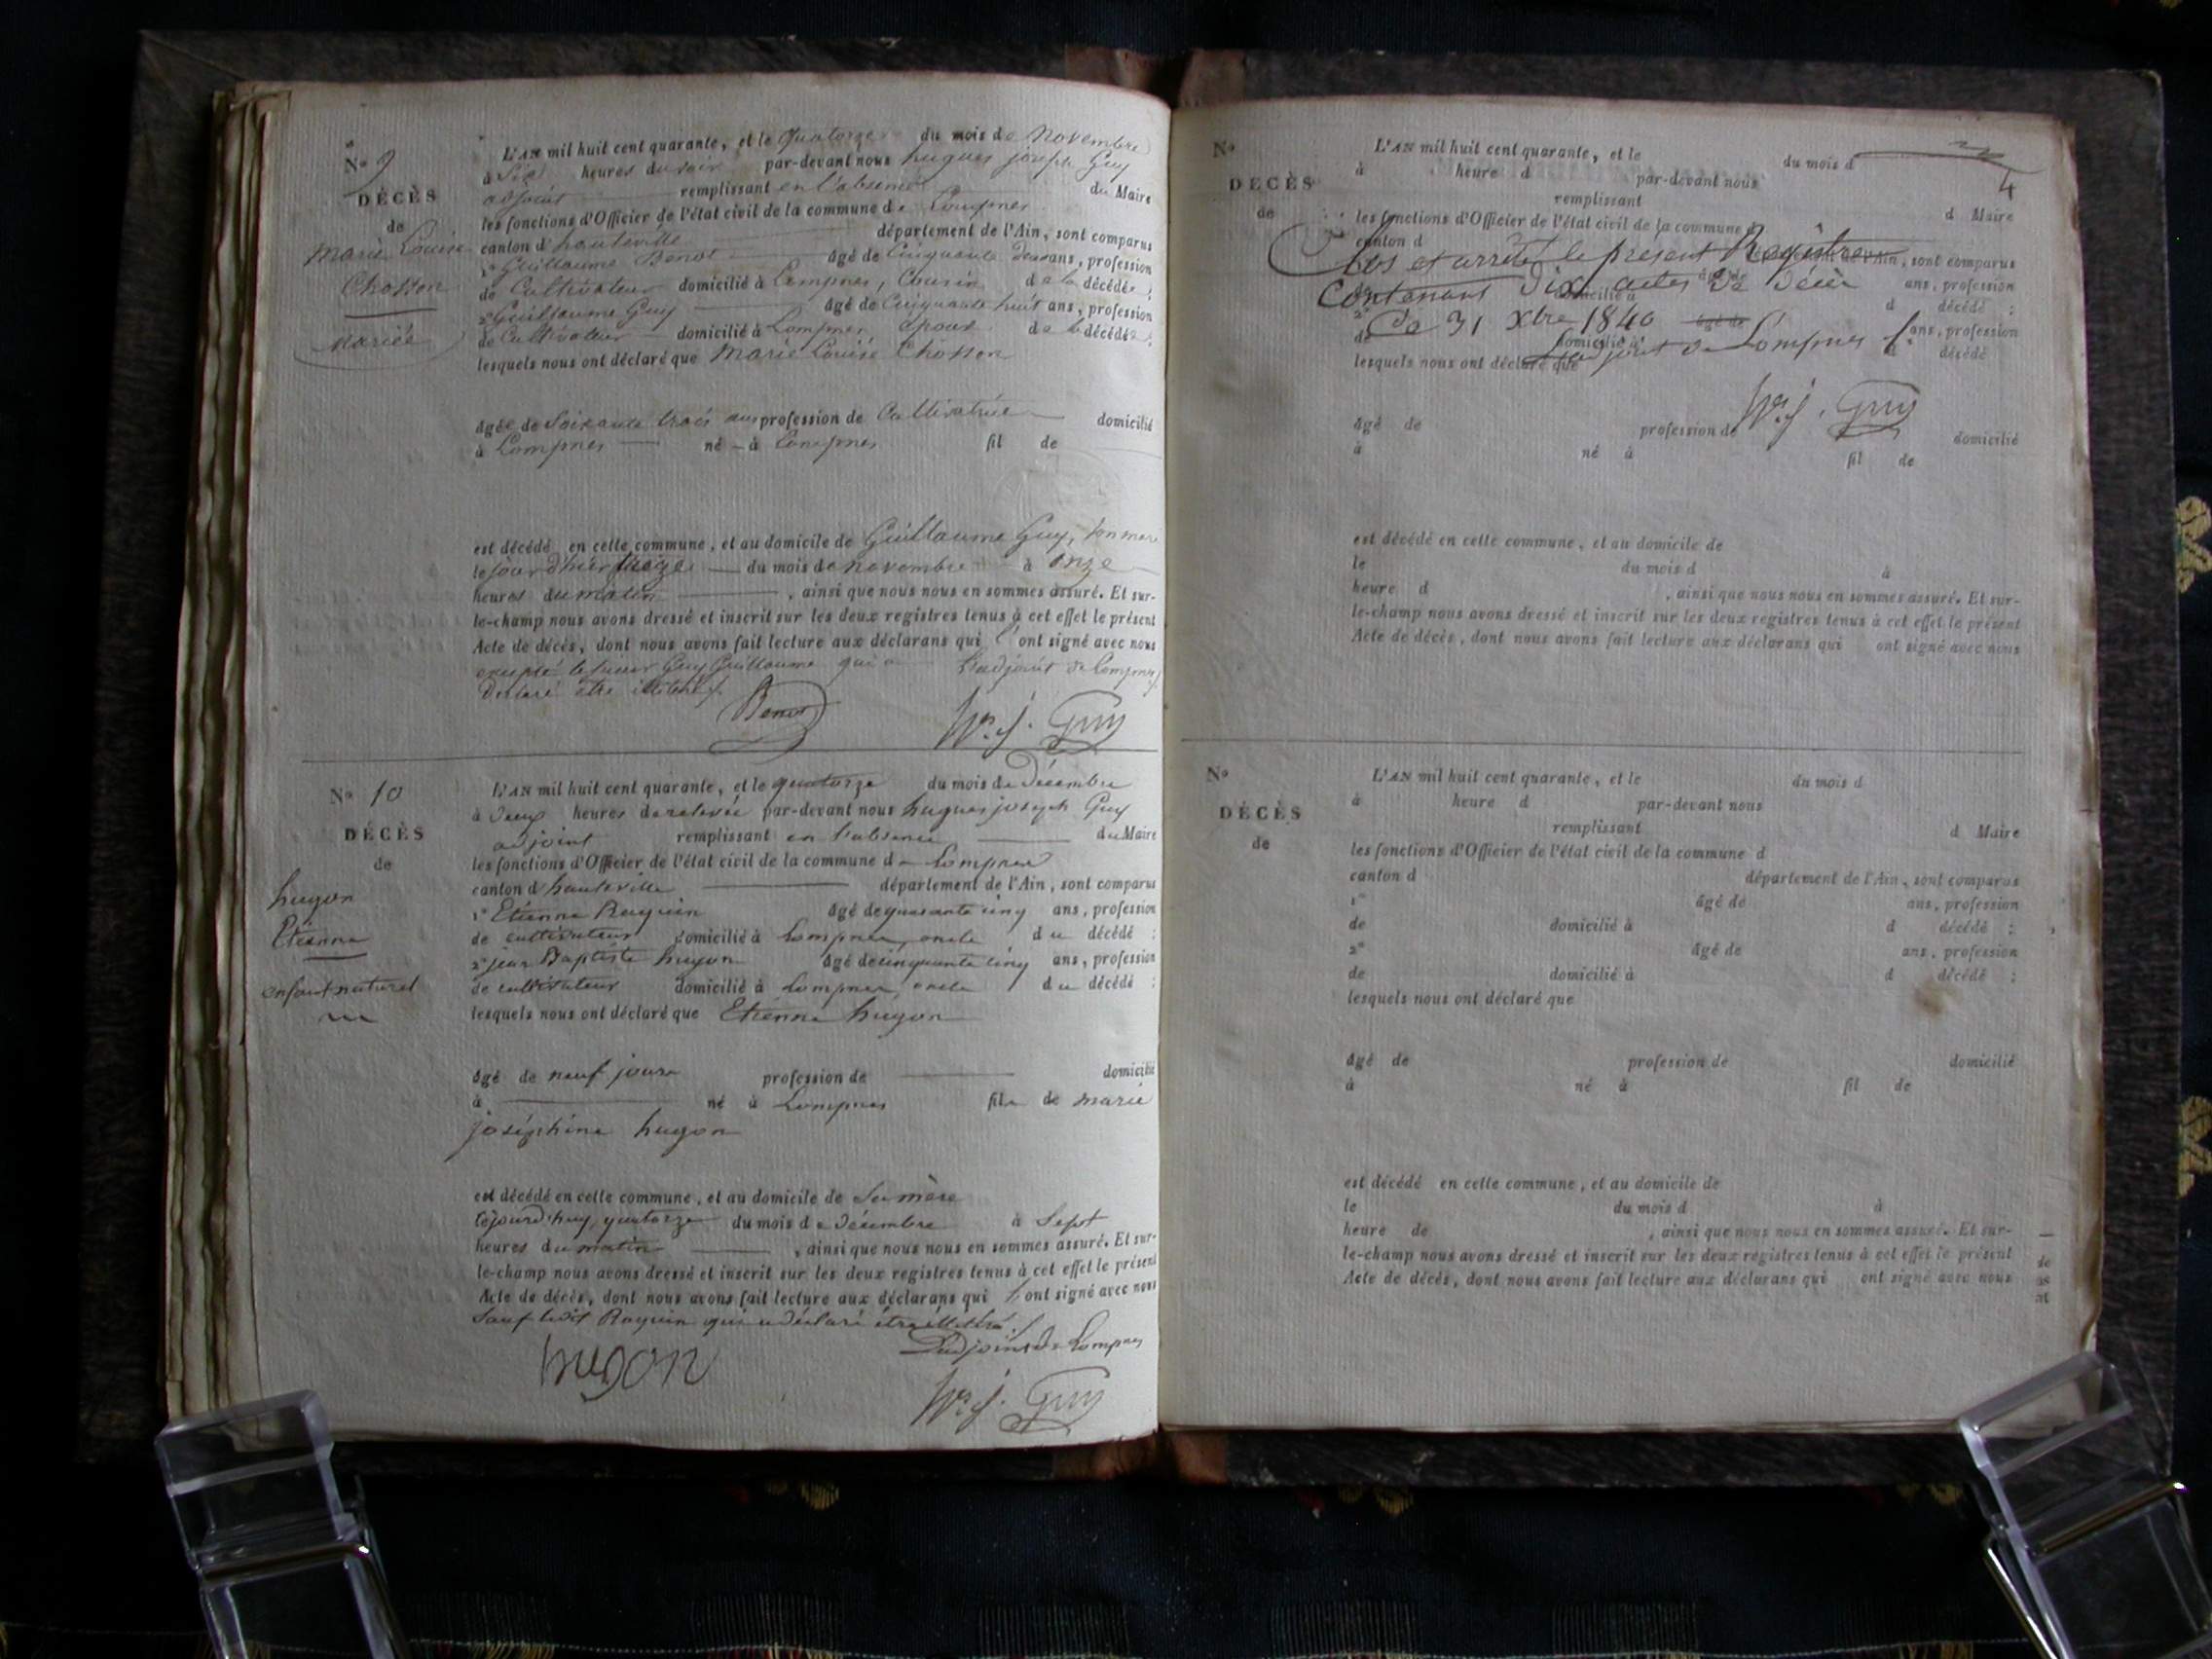 No 9
DÉCÈS
de
Marie Louise
Chosson
Mariée
L'AN mil huit cent quarante, et le quatorze du mois de Novembre
à six heures du soir par-devant nous hugues joseph Guy
adjoint remplissant en l'absence du Maire
les fonctions d'Officier de l'état civil de la commune de Lompnes
canton d'hauteville département de l'Ain, sont comparus
1° Guillaume Benot âgé de Cinquante deux ans, profession
de Cultivateur domicilié à Lompnes, Cousin de la décédée ;
2° Guillaume Guy âgé de Cinquante huit ans, profession
de Cultivateur domicilié à Lompnes époux de la décédée ;
lesquels nous ont déclaré que Marie Louise Chosson
âgée de Soixante trois ans profession de Cultivatrice domicilié
à Lompnes né à Lompnes fil de
est décédé en cette commune, et au domicile de Guillaume Guy, son mari
le jour d'hier treize du mois de novembre à onze
heures du matin, ainsi que nous nous en sommes assuré. Et sur-
le-champ nous avons dressé et inscrit sur les deux registres tenus à cet effet le présent
Acte de décès, dont nous avons fait lecture aux déclarans qui l'ont signé avec nous
excepté le sieur Guy Guillaume qui a L'adjoint de Lompnes
déclaré être illitéré
Benot hes. j. Guy
No 10
DÉCÈS
de
hugon
Etienne
enfant naturel
L'AN mil huit cent quarante, et le quatorze du mois de Décembre
à deux heures de relevée par-devant nous hugues joseph Guy
adjoint remplissant en l'absence du Maire
les fonctions d'Officier de l'état civil de la commune de Lompnes
canton d'hauteville département de l'Ain, sont comparus
1° Etienne Rayuin âgé de quarante cinq ans, profession
de cultivateur domicilié à Lompnes, oncle du décédé :
2° jean Baptiste hugon âgé de cinquante cinq ans, profession
de cultivateur domicilié à Lompnes, oncle du décédé :
lesquels nous ont déclaré que Etienne hugon
âgé de neuf jours profession de domicilié
à né à Lompnes fils de marie
joséphine hugon
est décédé en cette commune, et au domicile de Sa mère
cejourd'huy quatorze du mois de décembre à Sept
heures du matin, ainsi que nous nous en sommes assuré. Et sur-
le-champ nous avons dressé et inscrit sur les deux registres tenus à cet effet le présent
Acte de décès, dont nous avons fait lecture aux déclarans qui l'ont signé avec nous
Sauf ledit Rayuin qui a déclaré être illitéré
L'adjoint de Lompnes
hugon hes. j. Guy
No
DÉCÈS
de
4
L'AN mil huit cent quarante, et le du mois d
à heure d par-devant nous
remplissant d Maire
les fonctions d'Officier de l'état civil de la commune d
canton d département de l'Ain, sont comparus
Clos et arrêté le présent Registre
âgé de ans, profession
Contenant Dix actes de décès
de domicilié à d décédé :
2° Ce 31 Xbre 1840 âgé de ans, profession
de domicilié à d décédé
L'adjoint de Lompnes
lesquels nous ont déclaré que
hes. j. Guy
âgé de profession de domicilié
à né à fil de
est décédé en cette commune, et au domicile de
le du mois d à
heure d, ainsi que nous nous en sommes assuré. Et sur-
le-champ nous avons dressé et inscrit sur les deux registres tenus à cet effet le présent
Acte de décès, dont nous avons fait lecture aux déclarans qui ont signé avec nous
No
DÉCÈS
de
L'AN mil huit cent quarante, et le du mois d
à heure d par-devant nous
remplissant d Maire
les fonctions d'Officier de l'état civil de la commune d
canton d département de l'Ain, sont comparus
1° âgé de ans, profession
de domicilié à d décédé :
2° âgé de ans, profession
de domicilié à d décédé :
lesquels nous ont déclaré que
âgé de profession de domicilié
à né à fil de
est décédé en cette commune, et au domicile de
le du mois d à
heure de, ainsi que nous nous en sommes assuré. Et sur-
le-champ nous avons dressé et inscrit sur les deux registres tenus à cet effet le présent
Acte de décès, dont nous avons fait lecture aux déclarans qui ont signé avec nous